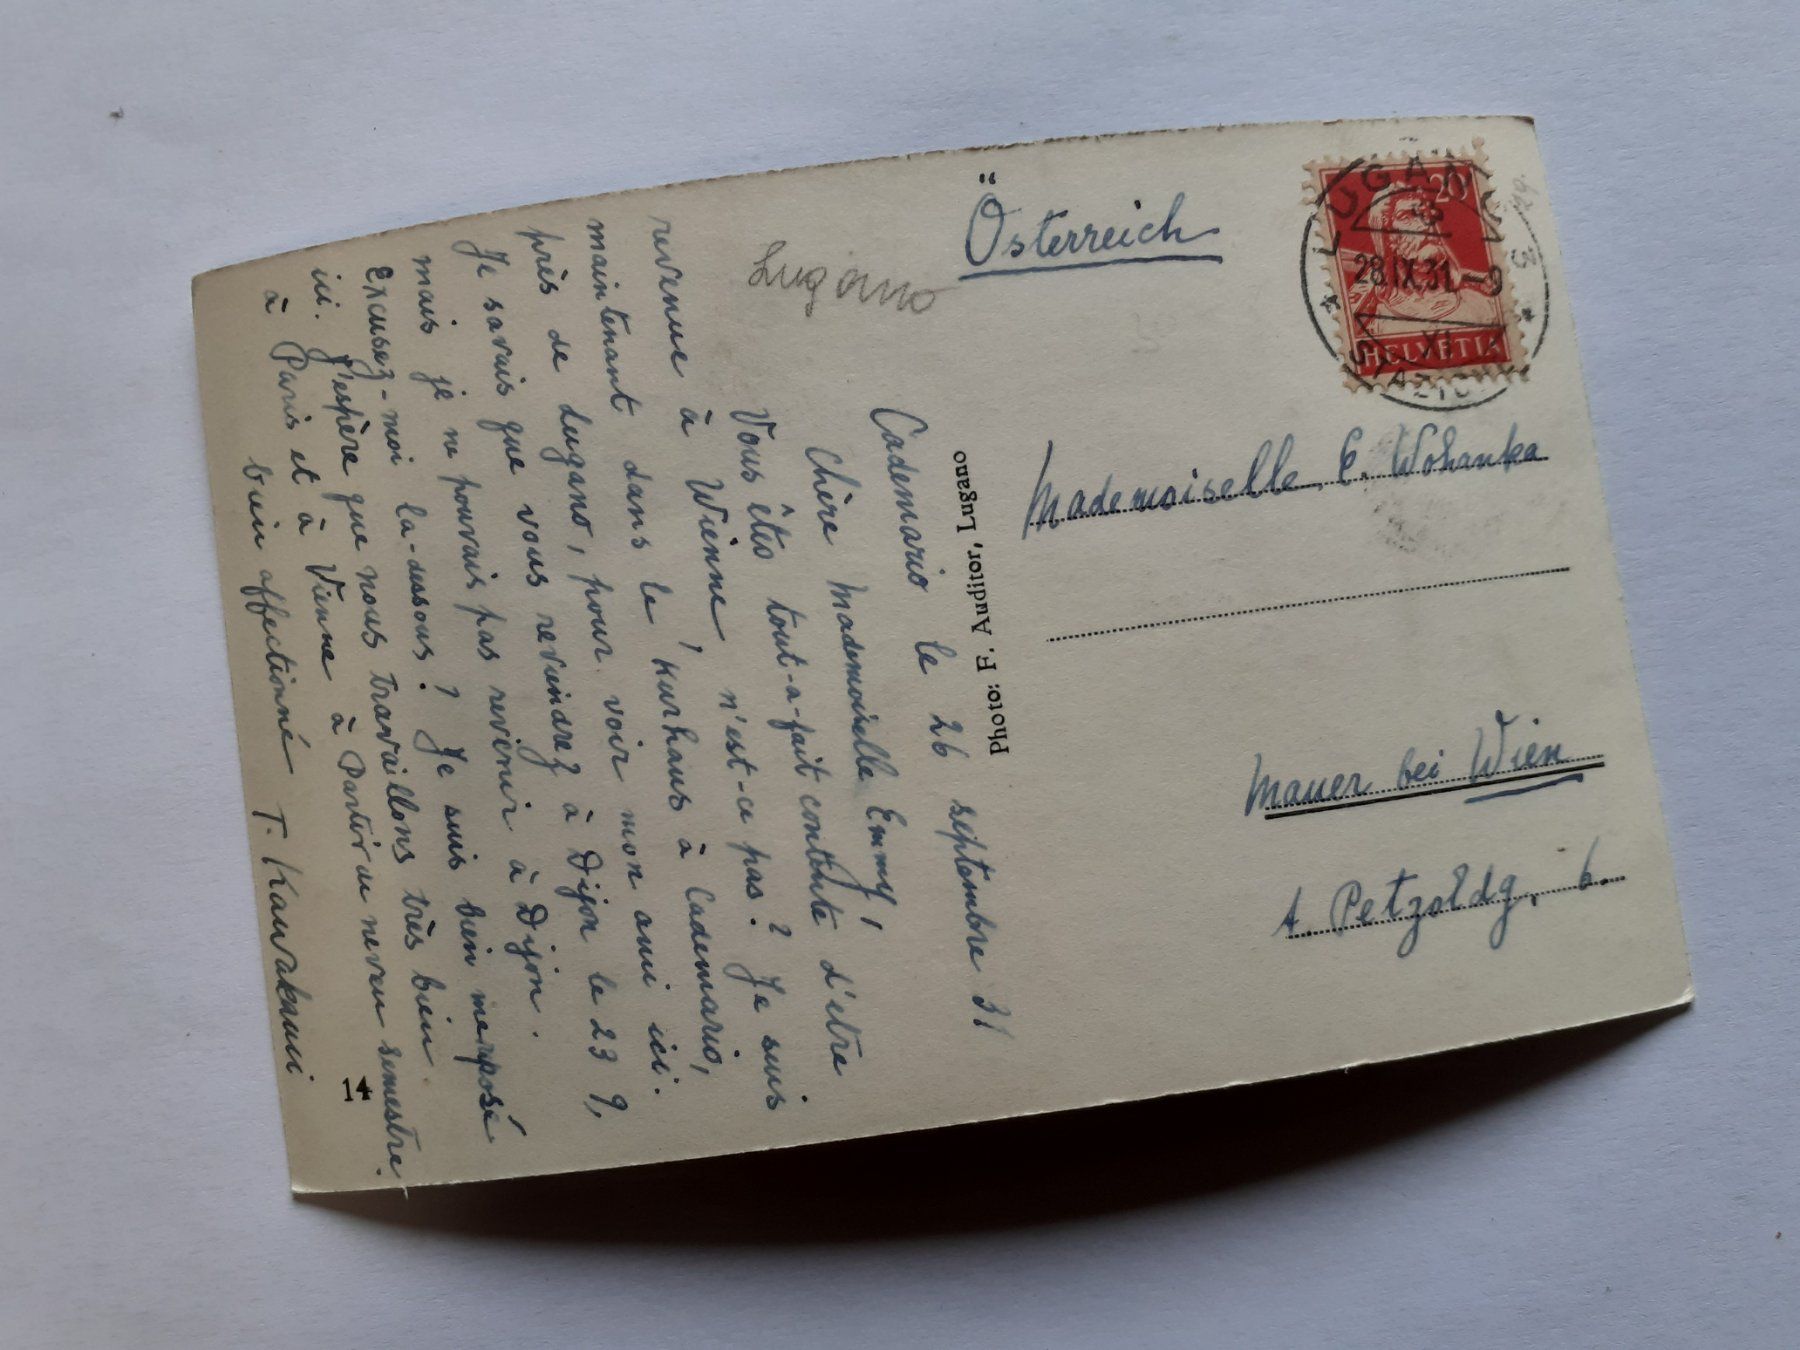 Cademario le 26 septembre 31
Chère Mademoiselle Emmy!
Vous êtes tout-a-fait contente d'etre
revenue à Wienne, n'est-ce pas? Je suis
maintenant dans le Kurhaus à Cademario,
près de Lugano, pour voir mon ami ici.
Je savais que vous reviendrez à Dijon le 23 9,
mais je ne pouvais pas revenir à Dijon.
Excusez-moi la-dessous! Je suis bien
ici. J'espère que nous travaillons très bien
à Paris et à Vienne à Partir du neveu semestre.
bien affectionné T. Kawakami
14
Photo: F. Auditor, Lugano
Lugano
Österreich
LUGANO 3
28.IX.31.-9
XI
STAZIONE
20
HELVETIA
Mademoiselle E. Wohanka
Mauer bei Wien
A. Petzoldg. 6.